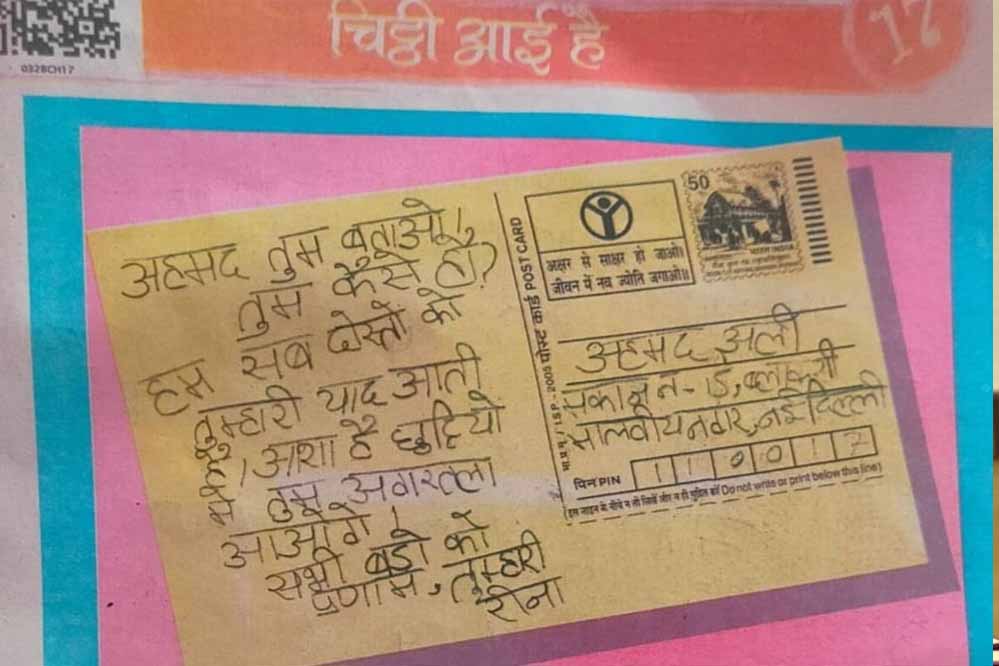 0328CH17
चिट्ठी आई है
17
अहमद तुम बताओ,
तुम कैसे हो?
हम सब दोस्तों को
तुम्हारी याद आती
है। आशा है छुट्टियों
में तुम अगरतला
आओगे।
सभी बड़ों को
प्रणाम, तुम्हारी
रीना
पोस्ट कार्ड POST CARD
2005
अक्षर से साक्षर हो जाओ।
जीवन में नव ज्योति जगाओ॥
50
भारत INDIA
अहमद अली
मकान न-15, ब्लाक-सी
मालवीय नगर, नई दिल्ली
पिन PIN 110012
इस लाइन के नीचे न तो लिखें और न ही मुद्रित करें (Do not write or print below this line)